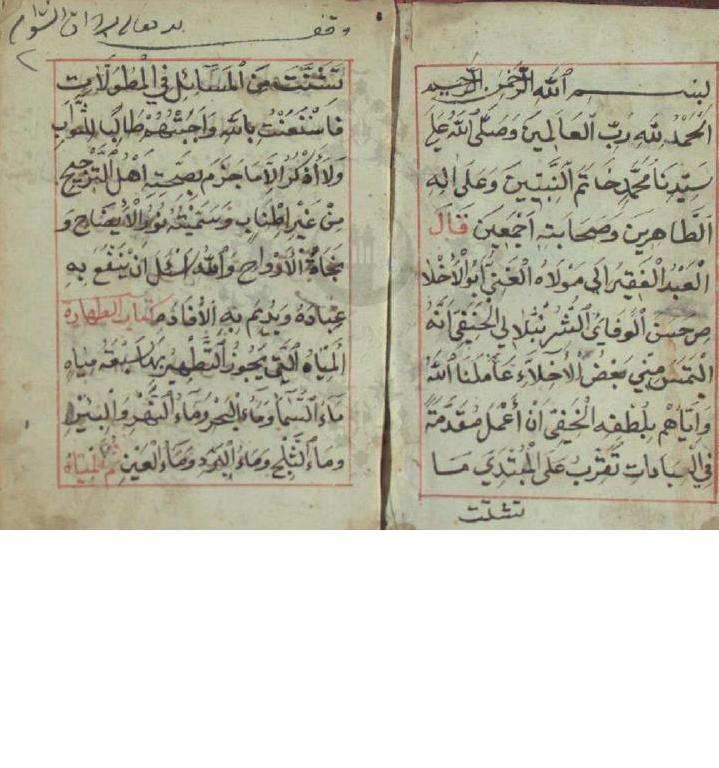 بسم الله الرحمن الرحيم
الحمد لله رب العالمين وصلى الله على
سيدنا محمد خاتم النبيين وعلى اله
الطاهرين وصحابته اجمعين قال
العبد الفقير الى مولاه الغني ابو الاخلا
ص حسن الوفائي الشرنبلالي الحنفي انه
التمس مني بعض الاخلاء عاملنا الله
واياهم بلطفه الخفي ان أعمل مقدمة
في العبادات تقرب على المبتدي ما
تشتت
وقف لله تعالى
تشتت من المسائل في المطولات
فاستعنت بالله واجبتهم طالبا للثواب
ولا أذكر الا ما جزم بصحته اهل الترجيح
من غير اطناب وسميته نور الايضاح و
نجاة الارواح والله اسئل ان ينفع به
عباده ويديم به الافادة كتاب الطهارة
المياه التي يجوز التطهير بها سبعة مياه
ماء السماء وماء البحر وماء النهر والبئر
وماء الثلج وماء البرد وماء العين ثم المياه